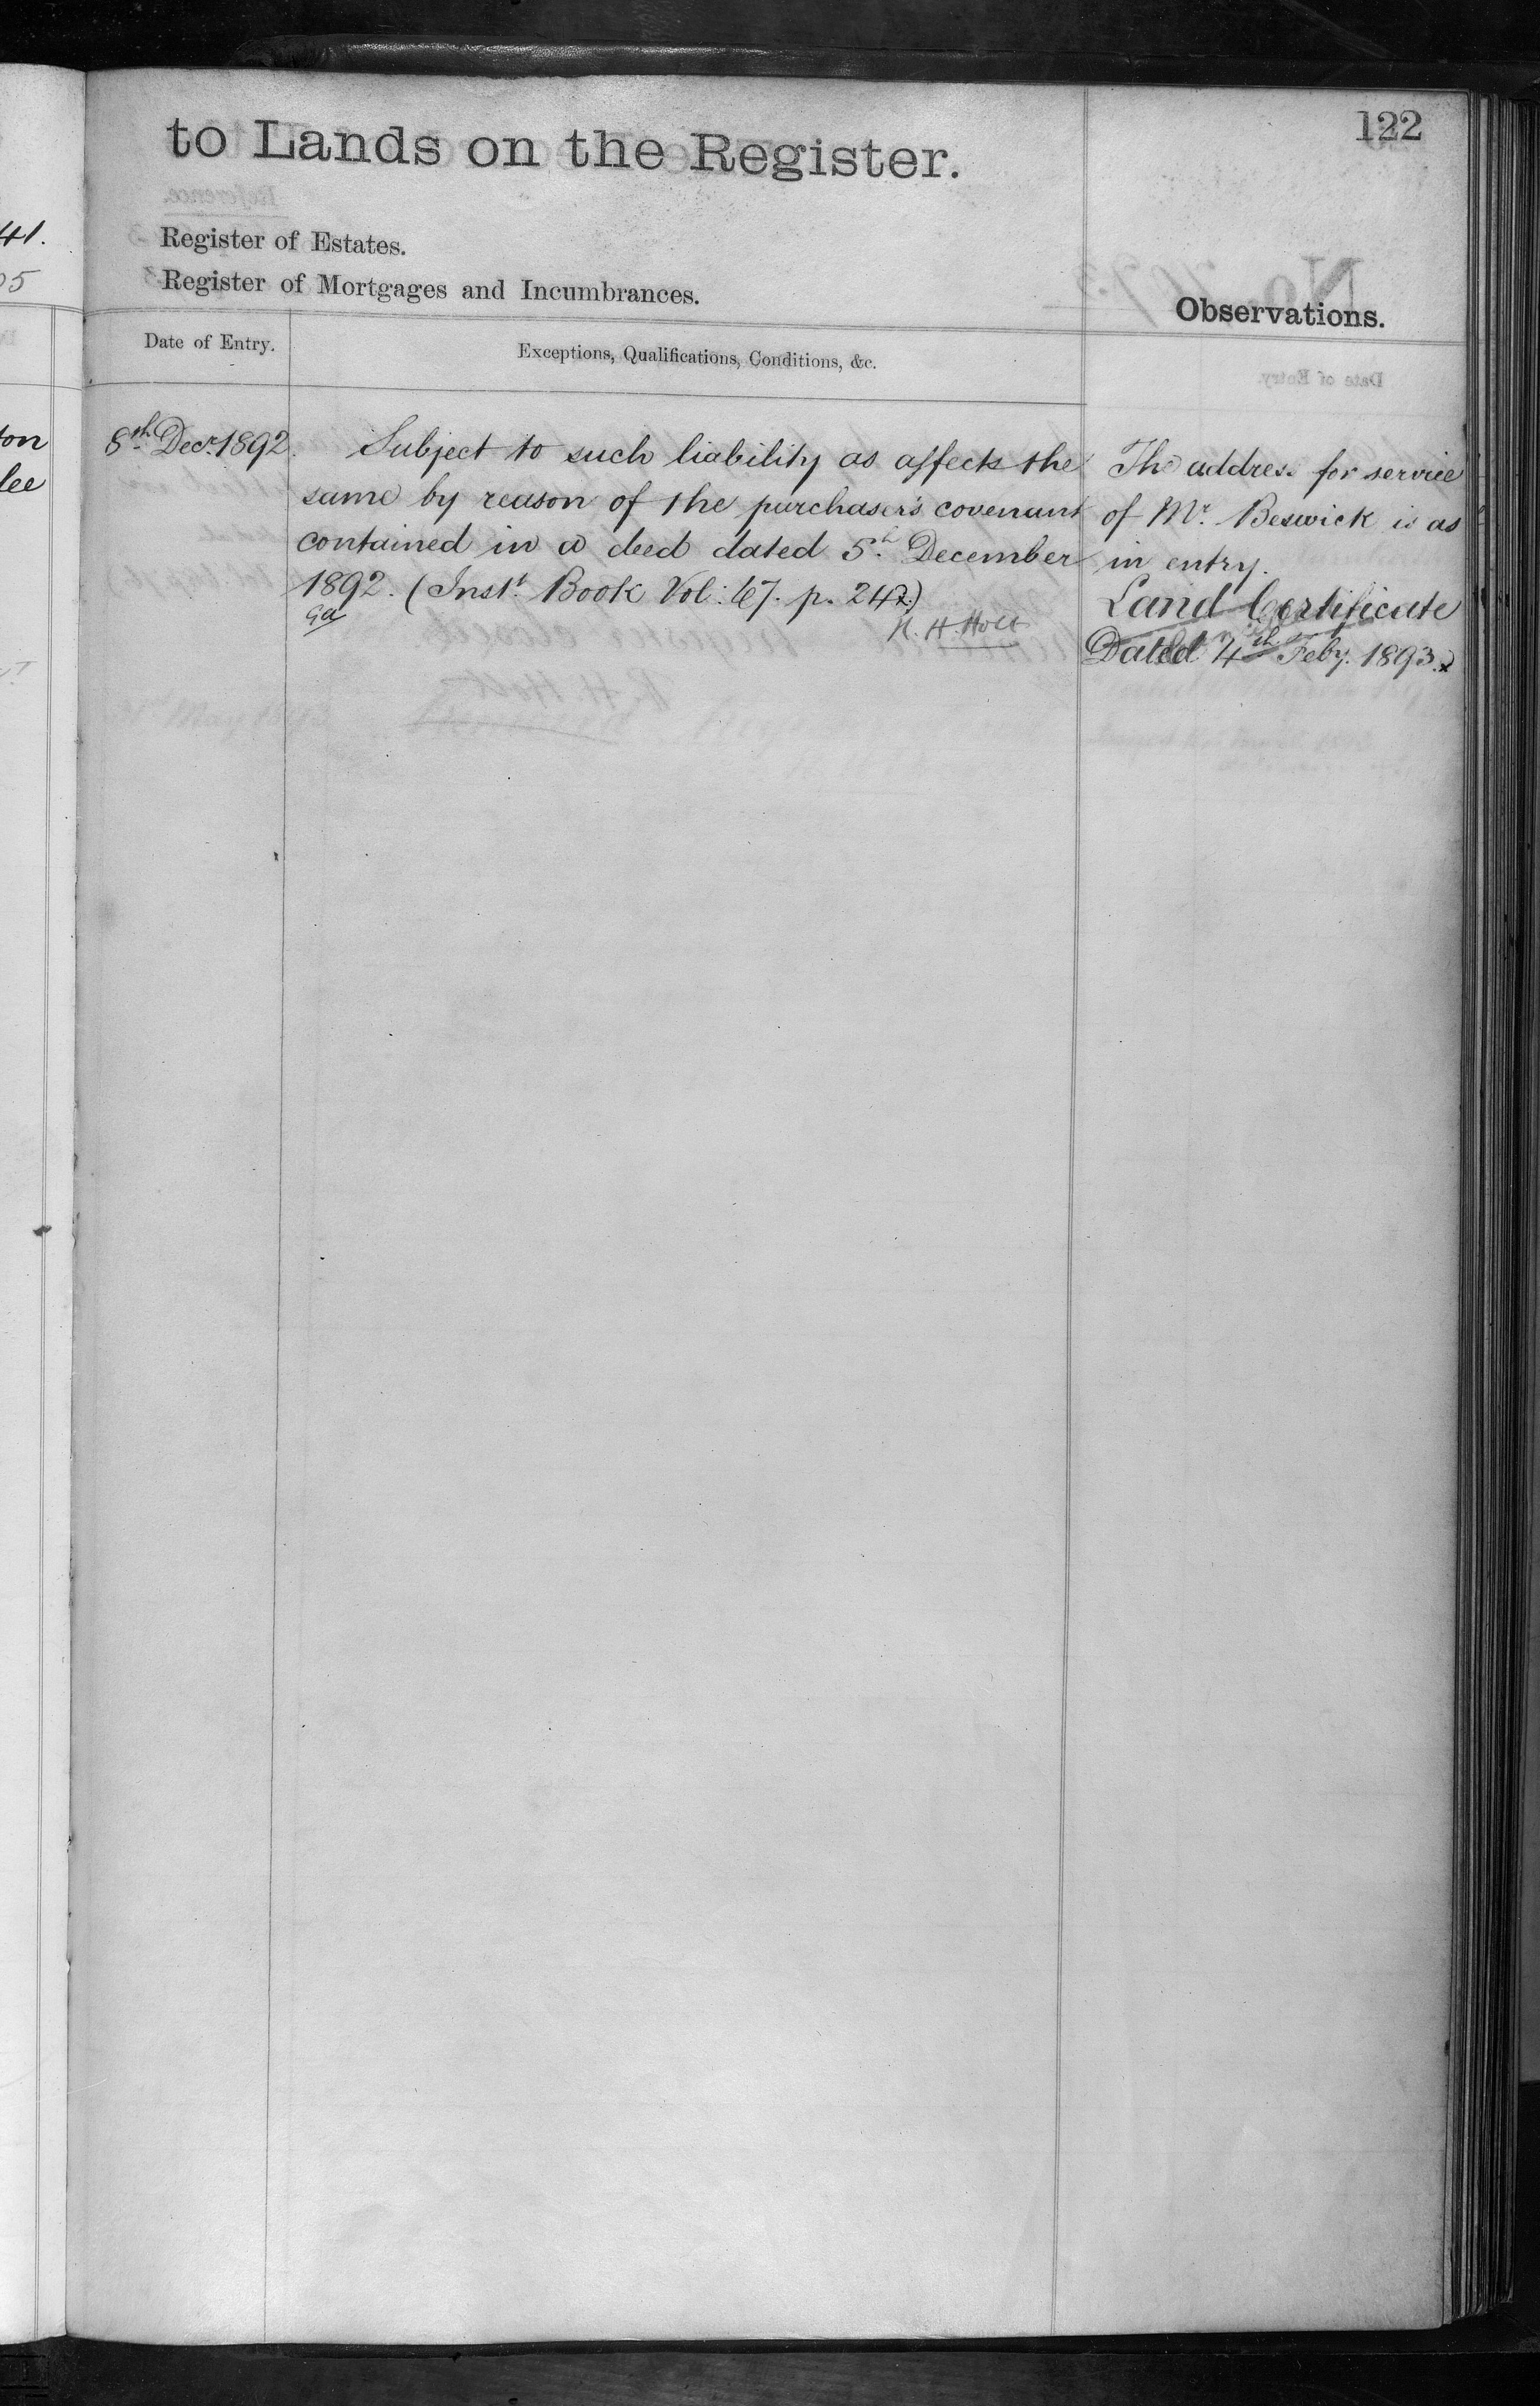 122
to Lands on the Register.
Register of Estates.
Register of Mortgages and Incumbrances.
Observations.
Date of Entry.
Exceptions, Qualifications, Conditions, &c.
8th Decr 1892.
Subject to such liability as affects the
same by reason of the purchaser's covenant
contained in a deed dated 5th December
1892. (Inst. Book Vol: 67. p. 242.)
H. H. Holt
The address for service
of Mr. Beswick is as
in entry.
Land Certificate
Dated 4th Feby. 1893.
41.
05
ton
lee